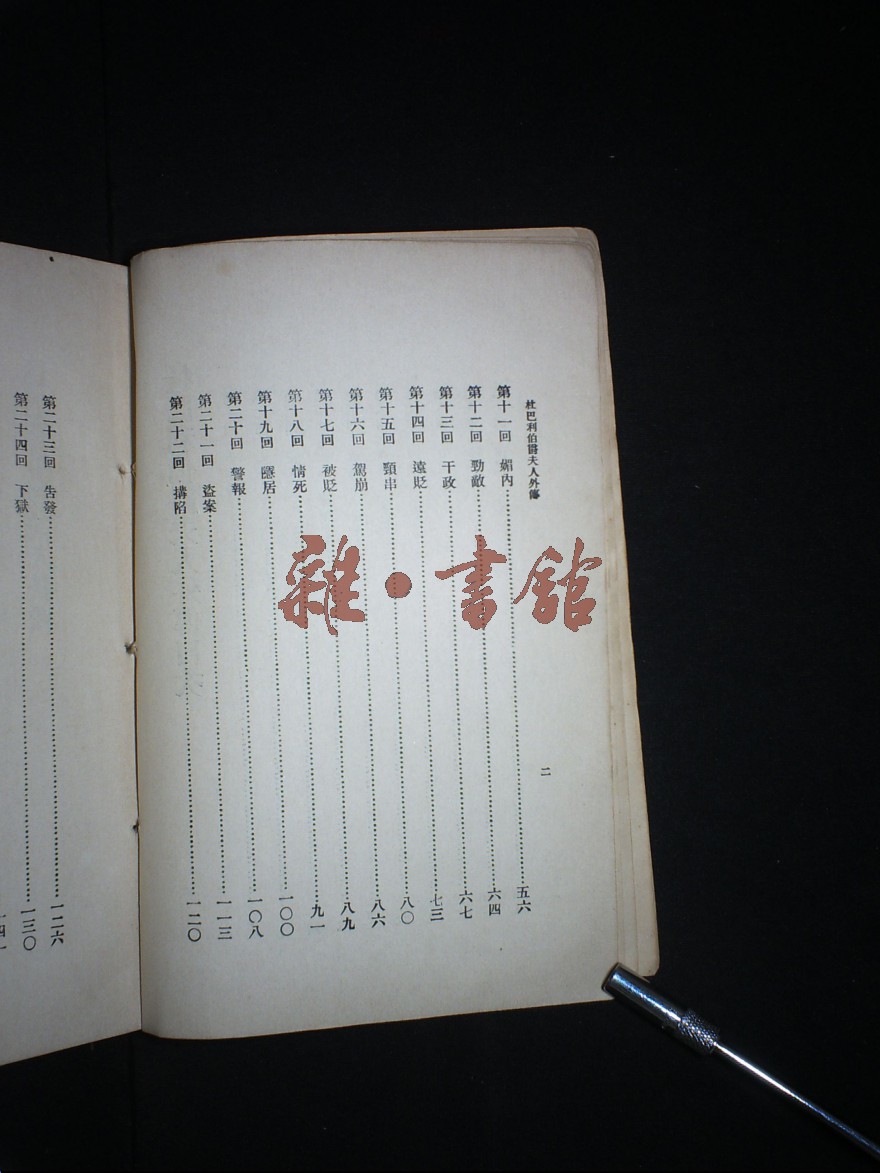 杜巴利伯爵夫人外傳
二
第十一回　媚內………五六
第十二回　勁敵………六四
第十三回　干政………六七
第十四回　遠貶………七三
第十五回　頸串………八〇
第十六回　駕崩………八六
第十七回　被貶………八九
第十八回　情死………九一
第十九回　隱居………一〇〇
第二十回　警報………一〇八
第二十一回　盜案………一一三
第二十二回　搆陷………一二〇
第二十三回　告發………一二六
第二十四回　下獄………一三〇
雜·書館